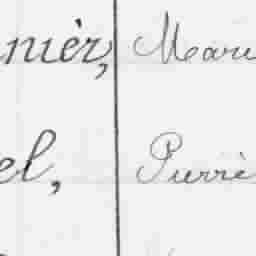 nièr, Mari
el, Pierre